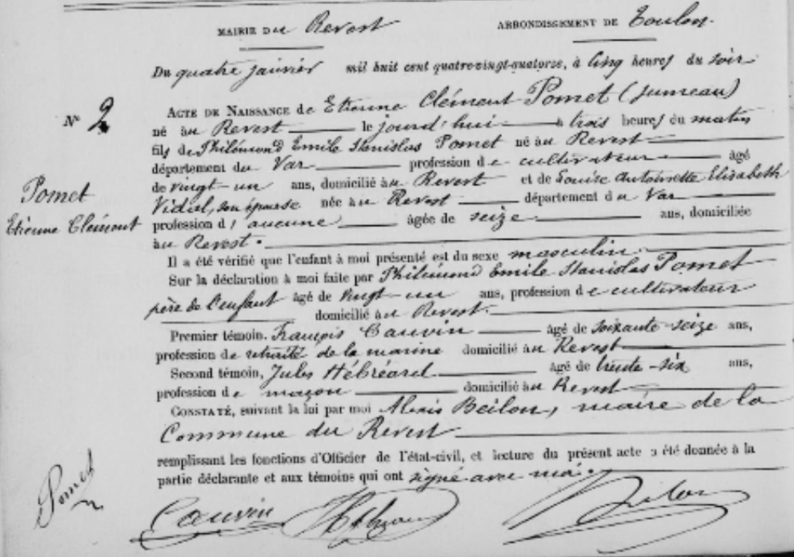 MAIRIE Du Revest ARRONDISSEMENT DE Toulon.
Du quatre janvier mil huit cent quatre-vingt-quatorze, à cinq heures du soir
N° 2 ACTE DE NAISSANCE de Etienne Clément Pomet (jumeau)
né au Revest le jourd'hui à trois heures du matin
fils de Philémond Emile Stanislas Pomet né au Revest
département du Var profession de cultivateur âgé
Pomet
Etienne Clément
de vingt-un ans, domicilié au Revest et de Louise Antoinette Elisabeth
Vidal, son épouse née au Revest département du Var
profession d'aucune âgée de seize ans, domiciliée
au Revest.
Il a été vérifié que l'enfant à moi présenté est du sexe masculin.
Sur la déclaration à moi faite par Philémond Emile Stanislas Pomet
père de l'enfant âgé de vingt-un ans, profession de cultivateur
domicilié au Revest.
Premier témoin, François Cauvin âgé de soixante-seize ans,
profession de retraité de la marine domicilié au Revest
Second témoin, Jules Hébréard âgé de trente-six ans,
profession de maçon domicilié au Revest
CONSTATÉ, suivant la loi par moi Alexis Beilon, maire de la
Commune du Revest
remplissant les fonctions d'Officier de l'état-civil, et lecture du présent acte a été donnée à la
partie déclarante et aux témoins qui ont signé avec moi.
Pomet Cauvin